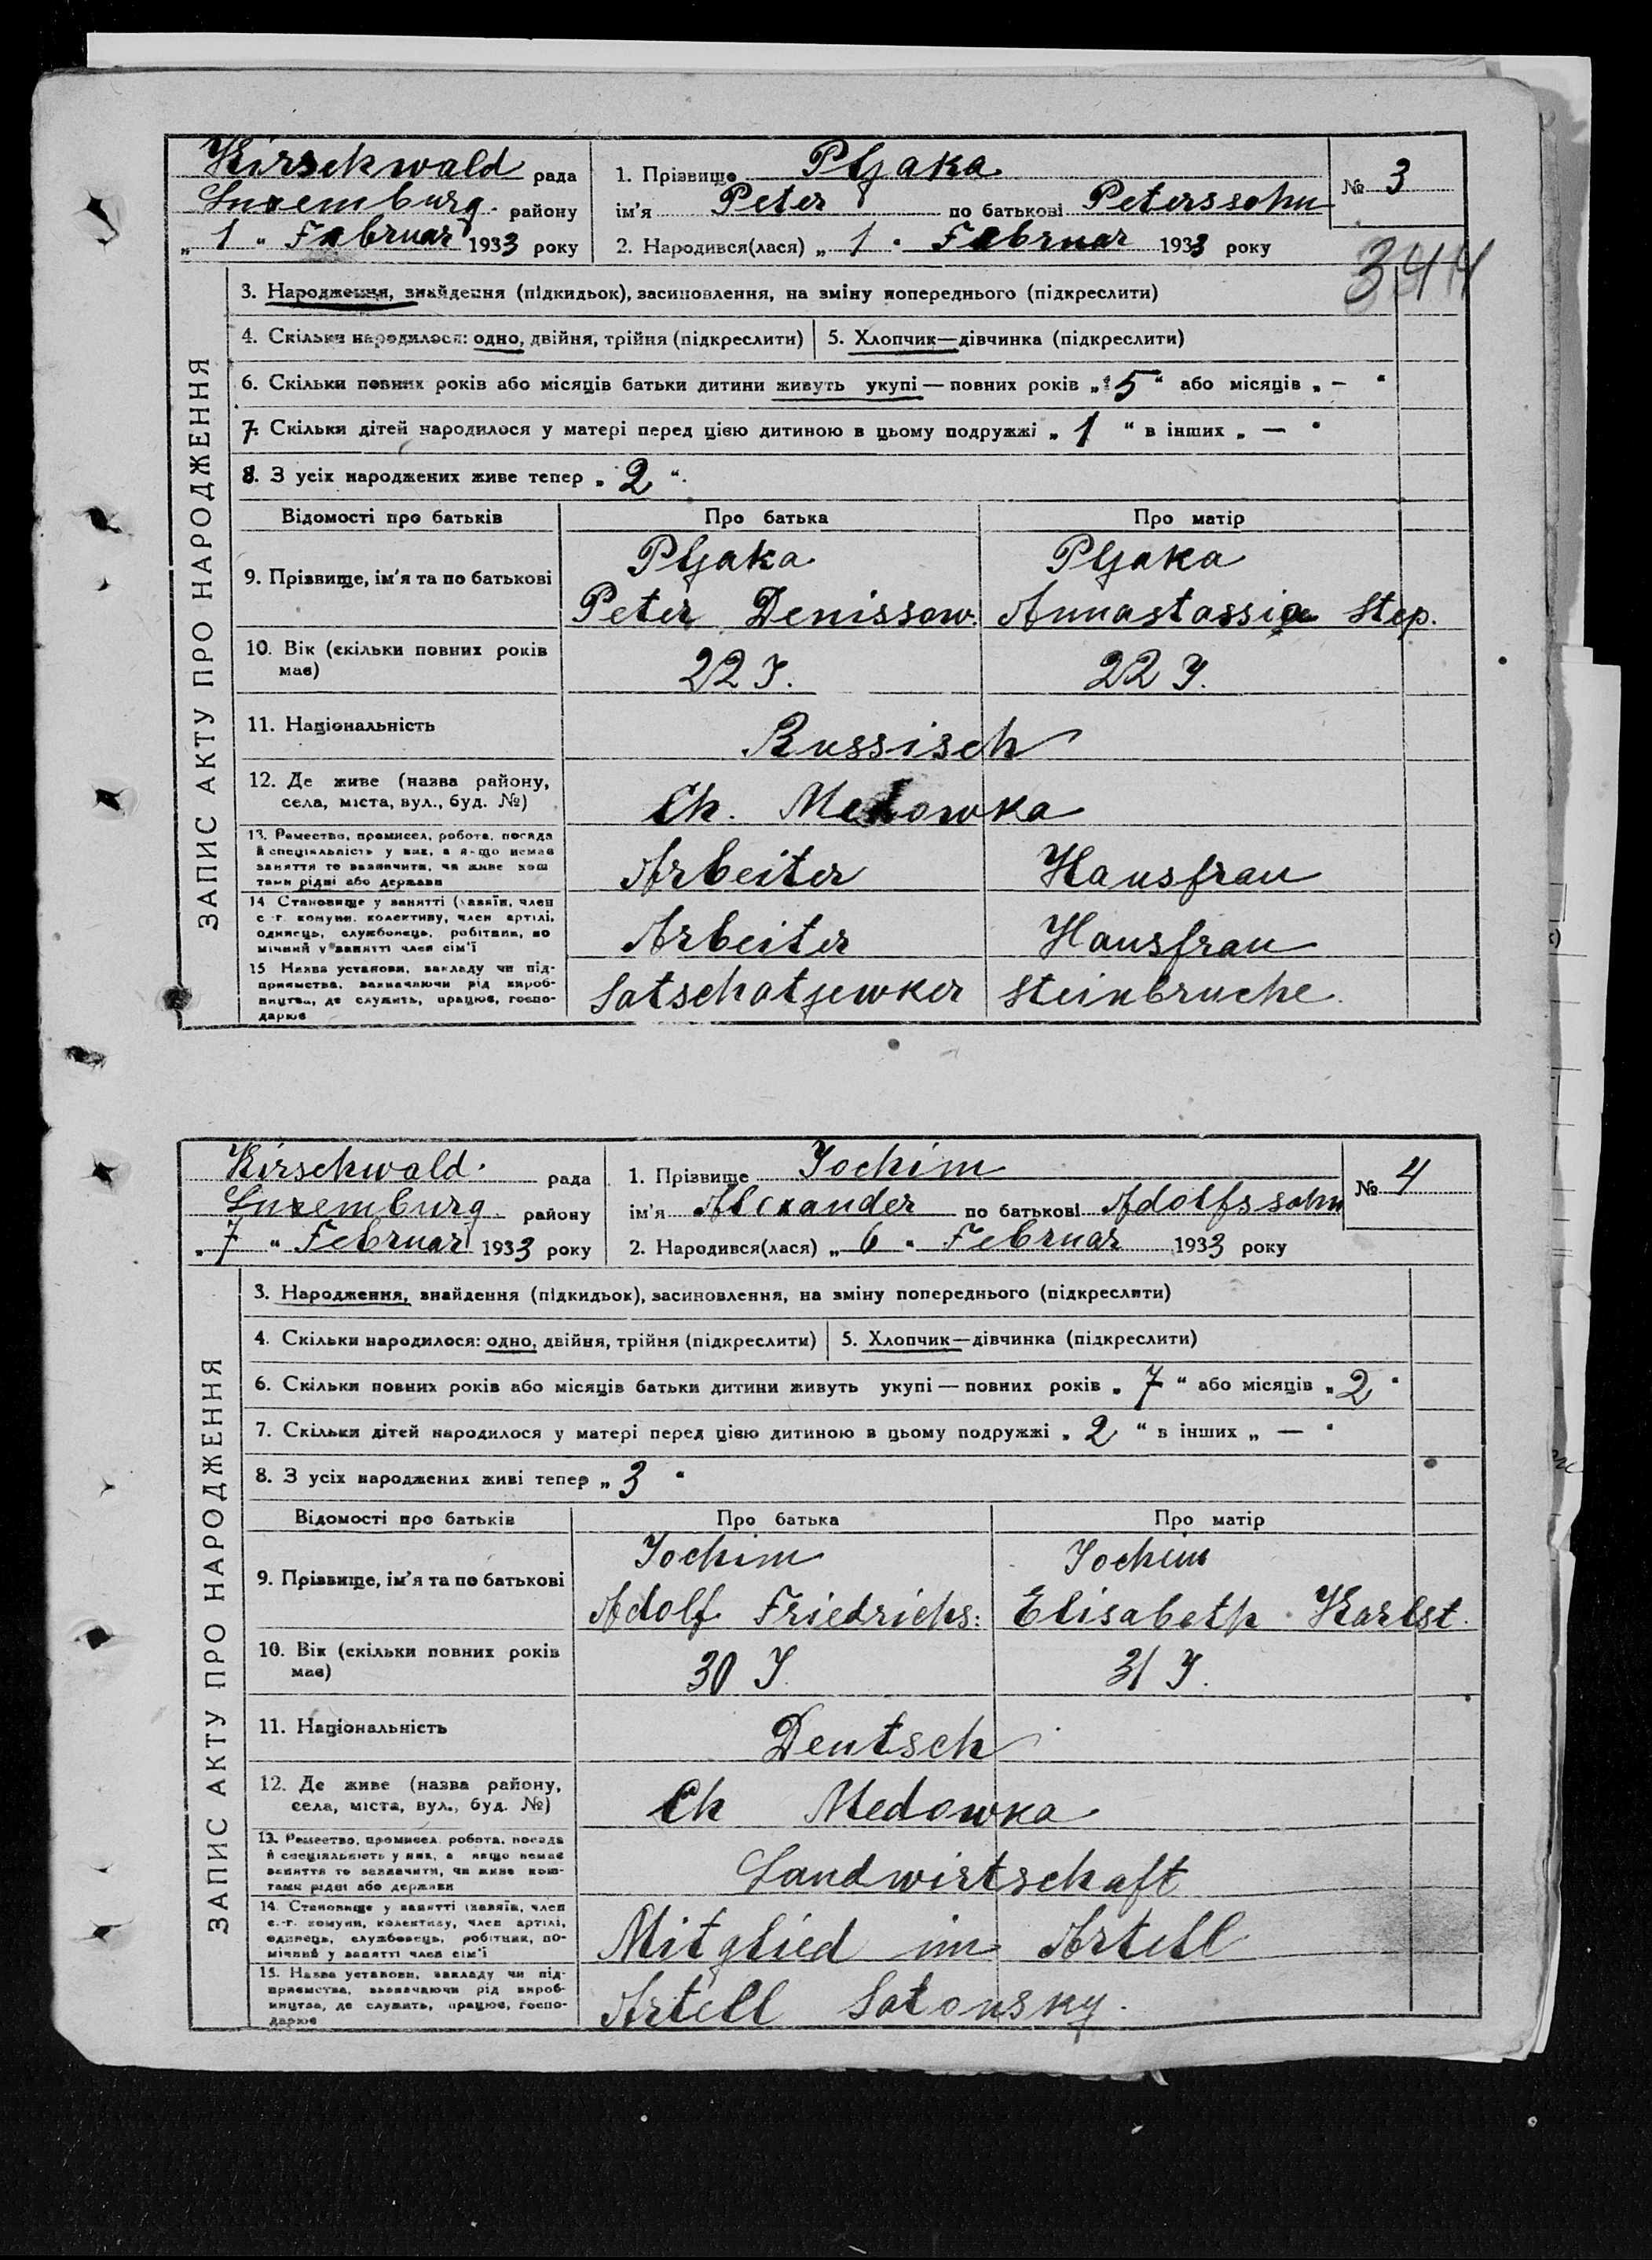 Kirschwald рада
Luxemburg району
„ 1 “ Februar 1933 року
1. Прізвище Pljaka
ім'я Peter по батькові Peterssohn
2. Народився(лася) „ 1 “ Februar 1933 року
№ 3
344
ЗАПИС АКТУ ПРО НАРОДЖЕННЯ
3. Народження, знайдення (підкидьок), засиновлення, на зміну попереднього (підкреслити)
4. Скільки народилося: одно, двійня, трійня (підкреслити) 5. Хлопчик—дівчинка (підкреслити)
6. Скільки повних років або місяців батьки дитини живуть укупі — повних років „ 5 “ або місяців „ – “
7. Скільки дітей народилося у матері перед цією дитиною в цьому подружжі „ 1 “ в інших „ — “
8. З усіх народжених живе тепер „ 2 “.
Відомості про батьків Про батька Про матір
9. Прізвище, ім'я та по батькові
Pljaka Pljaka
Peter Denissow. Annastassia Step.
10. Вік (скільки повних років має)
22 J. 22 J.
11. Національність
Russisch
12. Де живе (назва району,
села, міста, вул., буд. №)
Ch. Medowka
13. Ремество, промисел, робота, посада
й спеціяльність у них, а якщо немає
заняття то зазначити, чи живе кош
тами рідні або держави
Arbeiter Hausfrau
14 Становище у занятті (хазяїн, член
с.-г. комуни, колективу, член артілі,
одинець, службовець, робітник, по
мічний у занятті член сім'ї
Arbeiter Hausfrau
15 Назва установи, закладу чи під-
приємства, зазначаючи рід вироб-
ництва, де служить, працює, госпо-
дарює
Satschatjewker Steinbruche.
Kirschwald. рада
Luxemburg району
„ 7 “ Februar 1933 року
1. Прізвище Jochim
ім'я Alexander по батькові Adolfssohn
2. Народився(лася) „ 6 “ Februar 1933 року
№ 4
ЗАПИС АКТУ ПРО НАРОДЖЕННЯ
3. Народження, знайдення (підкидьок), засиновлення, на зміну попереднього (підкреслити)
4. Скільки народилося: одно, двійня, трійня (підкреслити) 5. Хлопчик—дівчинка (підкреслити)
6. Скільки повних років або місяців батьки дитини живуть укупі — повних років „ 7 “ або місяців „ 2 “
7. Скільки дітей народилося у матері перед цією дитиною в цьому подружжі „ 2 “ в інших „ — “
8. З усіх народжених живі тепер „ 3 “
Відомості про батьків Про батька Про матір
9. Прізвище, ім'я та по батькові
Jochim Jochim
Adolf Friedrichs: Elisabeth Karlst.
10. Вік (скільки повних років має)
30 J. 31 J.
11. Національність
Deutsch
12. Де живе (назва району,
села, міста, вул., буд. №)
Ch Medowka
13. Ремество, промисел, робота, посада
й спеціяльність у них, а якщо немає
заняття то зазначити, чи живе кош-
тами рідні або держави
Landwirtschaft
14. Становище у занятті (хазяїн, член
с.-г. комуни, колективу, член артілі,
одинець, службовець, робітник, по-
мічний у занятті член сім'ї
Mitglied im Artell
15. Назва установи, закладу чи під-
приємства, зазначаючи рід вироб-
ництва, де служить, працює, госпо-
дарює
Artell Satonsky.